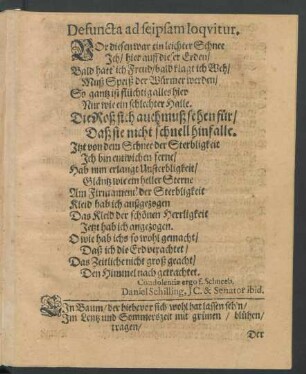 Defuncta ad seipsam loqvitur.
VOr diesen war ein leichter Schnee
Ich/ hier auff dieser Erden/
Bald hatt' ich Frend/ bald klagt ich Weh/
Muß Speiß der Würmer werden/
So gantz ist flüchtig alles hier
Nur wie ein schlechter Halle.
Die Roß sich auch muß sehen für/
Daß sie nicht schnell hinfalle.
Itzt von dem Schnee der Sterbligkeit
Ich bin entwichen ferne/
Hab nun erlangt Unsterbligkeit/
Gläntz wie ein heller Sterne
Am Firmament/ der Sterbligkeit
Kleid hab ich außgezogen
Das Kleid der schönen Herrligkeit
Jetzt hab ich angezogen.
O wie hab ichs so wohl gemacht/
Daß ich die Erd verachtet/
Das Zeitliche nicht groß geacht/
Den Himmel nach getrachtet.
Condolentiæ ergo f. Schneeb.
Daniel Schilling, J C. & Senator ibid.
EIn Baum/ der hiebevor sich wohl hat lassen seh'n/
Im Lentz und Sommerszeit mit grünen/ blühen/
tragen/
Der